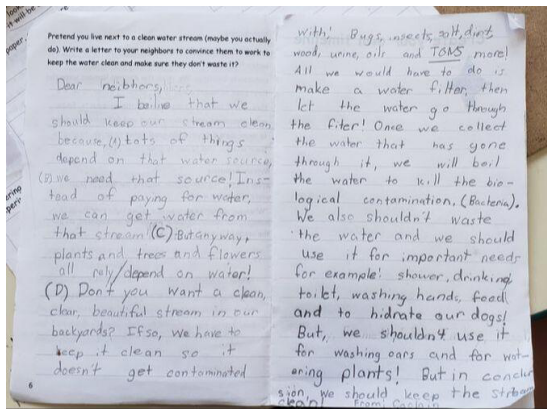 Pretend you live next to a clean water stream (maybe you actually
do). Write a letter to your neighbors to convince them to work to
keep the water clean and make sure they don't waste it?
Dear neibhors,
I bailive that we
should keep our stream clean
because, (A) Lots of things
depend on that water source,
(B) we need that source! Ins-
tead of paying for water,
we can get water from
that stream (C) But anyway,
plants and trees and flowers
all rely/depend on water!
(D) Don't you want a clean,
clear, beautiful stream in our
backyards? If so, we have to
keep it clean so it
doesn't get contaminated
6
with; Bugs, insects, salt, dirt
wood, urine, oils and TONS more!
All we would have to do is
make a water filter, then
let the water go through
the fiter! Once we collect
the water that has gone
through it, we will boil
the water to kill the bio-
logical contamination. (Bacteria).
We also shouldn't waste
the water and we should
use it for important needs
for example: shower, drinking,
toilet, washing hands, food,
and to hidrate our dogs!
But, we shouldn't use it
for washing cars and for wat-
ering plants! But in conclu-
sion, we should keep the stream
clean! From: